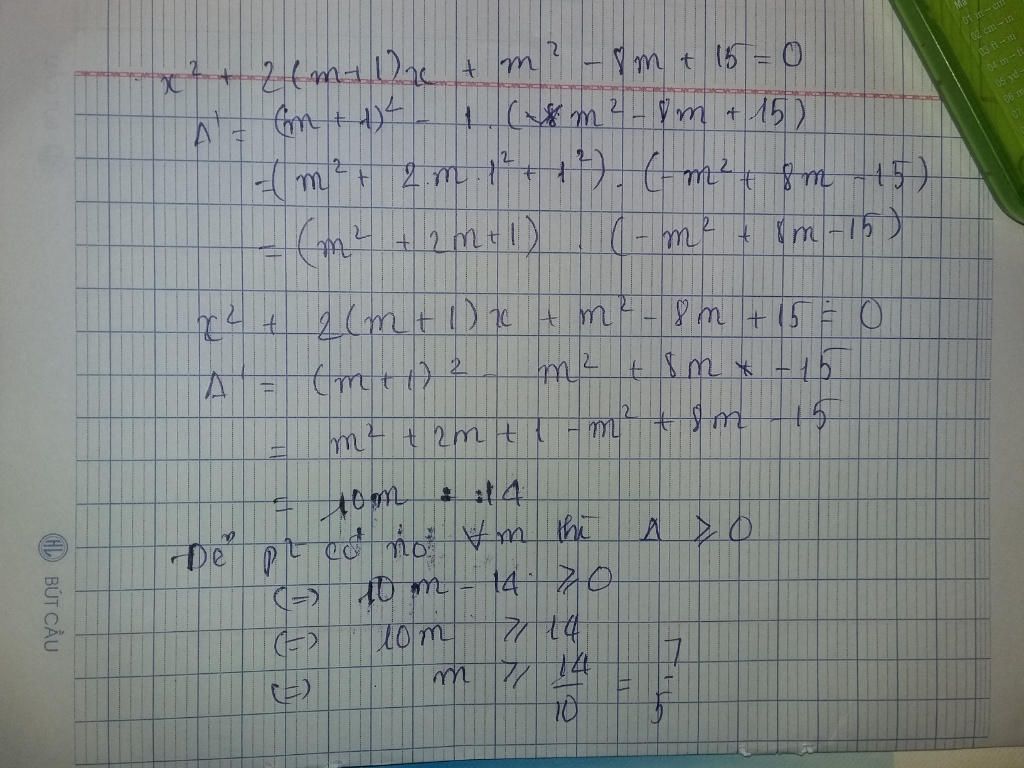 x² + 2(m+1)x + m² - 8m + 15 = 0
Δ' = (m + 1)² - 1 . ( m² - 8m + 15)
= ( m² + 2.m.1² + 1²) . (- m² + 8m - 15)
= (m² + 2m+1) . (- m² + 8m - 15)
x² + 2(m+1)x + m² - 8m + 15 = 0
Δ' = (m+1)² - m² + 8m - 15
= m² + 2m + 1 - m² + 8m - 15
= 10m - 14
Để p² có no ∀m thì Δ ≥ 0
(=) 10m - 14 ≥ 0
(=) 10m ≥ 14
(=) m ≥ 14/10 = 7/5
BÚT CẦU